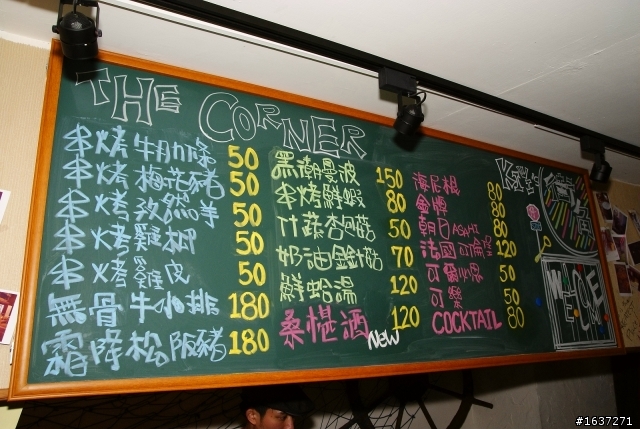 THE CORNER
串烤牛肋條 50
串烤梅花豬 50
串烤孜然羊 50
串烤雞柳 50
串烤雞皮 50
無骨牛小排 180
霜降松阪豬 180
黑潮曼波 150
串烤鮮蝦 80
什蔬杏包菇 50
奶油金針菇 70
鮮蛤湯 120
桑椹酒 120
New
海尼根 80
金牌 80
朝日ASAHI 80
法國可倫堡 120
可爾必思 50
可樂 50
COCKTAIL 80
WELCOME
#1637271